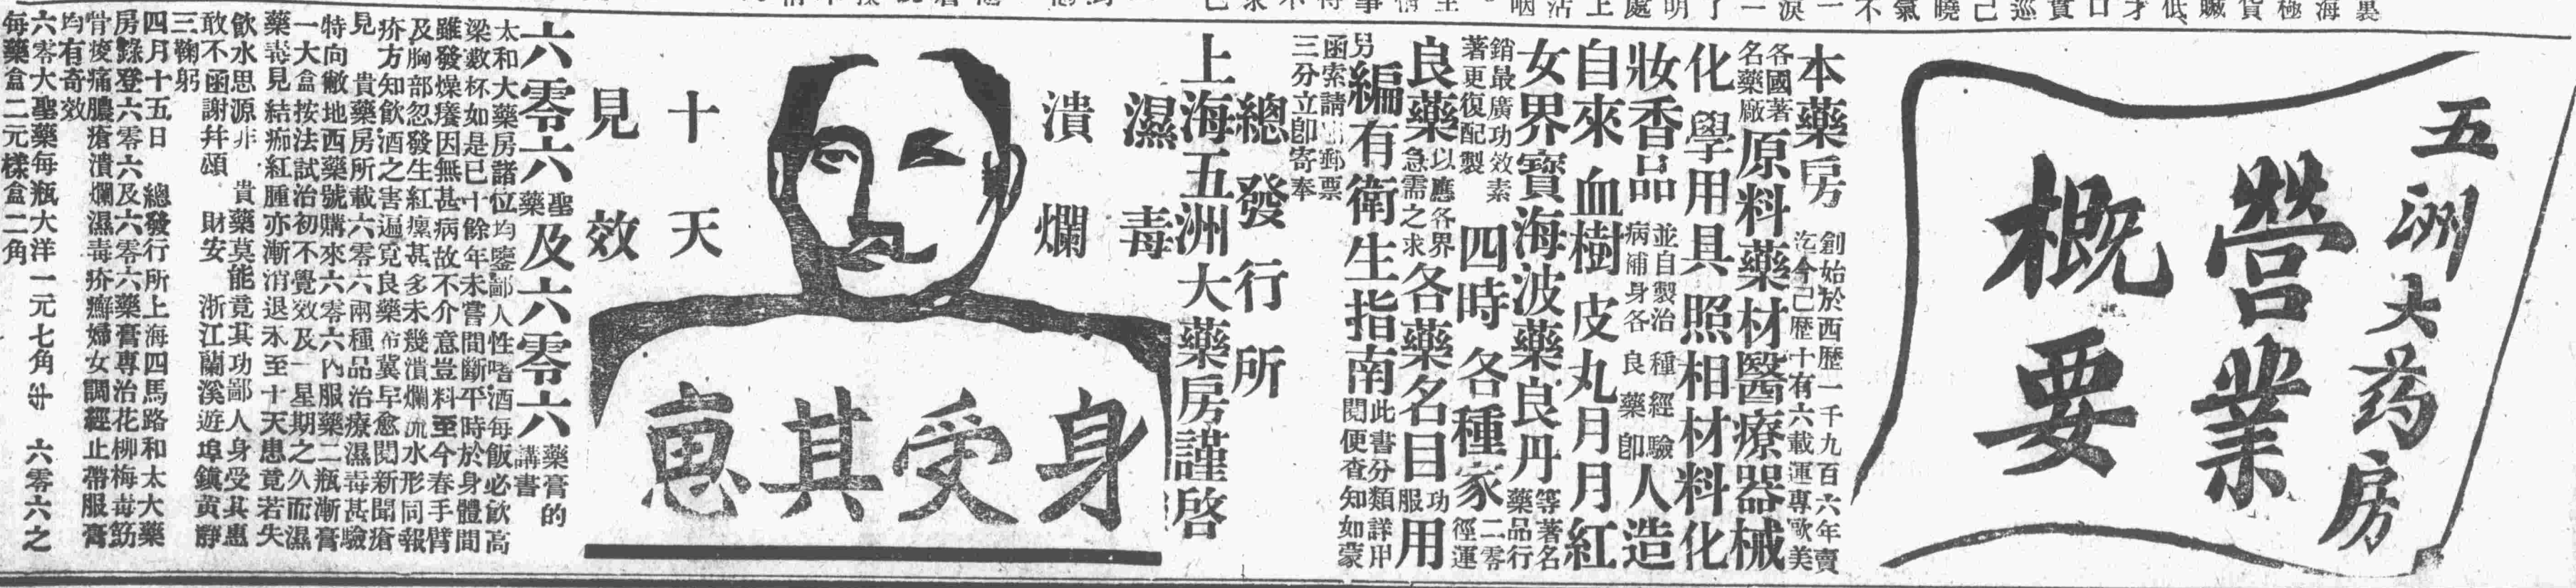 五洲大药房
營業
概要
本藥房創始於西歷一千九百六年賣
迄今已歷十有六載運專歐美
各國著名藥廠原料藥材醫療器械
化學用具照相材料化
妝香品並自製治種經驗
病補身各良藥卽人造
自來血樹皮丸月月紅
女界寶海波藥良丹等著名藥品行
銷最廣功效素著更復配製四時各種家
良藥以應各界急需之求各藥名目功
服用
另編有衛生指南此書分類詳
閱便查知如蒙
函索請郵票
三分立卽寄奉
總發行所
上海五洲大藥房謹啓
濕毒
潰爛
十天
見效
身受其惠
六零六聖藥及六零六藥膏的
講書
太和大藥房諸位均鑒鄙人性嗜酒每飯必飲高
梁數杯如是已十餘年未嘗間斷平時於身體間
雖發燥癢因無甚病故不介意豈料至今春手臂
及胸部忽發生紅癝甚多未幾潰爛流水形同報
疥方知飲酒之害遍覓良藥布冀早愈閱新聞瘡
見貴藥房所載六零六兩種品治療濕毒甚驗
特向敝地西藥號購來六零六內服藥二瓶漸膏
一大盒按法試治初不覺效及一星期之久而濕
藥毒見結痂紅腫亦漸消退水至十天患竟若失
飲水思源非貴藥莫能竟其功鄙人身受其惠
敢不函謝幷頌財安浙江蘭溪遊埠鎮黃靜
三鞠躬
四月十五日總發行所上海四馬路和太大藥
房錄登六零六及六零六藥膏專治花柳梅毒筋
骨痠痛膿瘡潰爛濕毒疥癬婦女調經止帶服膏
均有奇效
六零大聖藥每瓶大洋一元七角六零六之
每藥盒二元樣盒二角